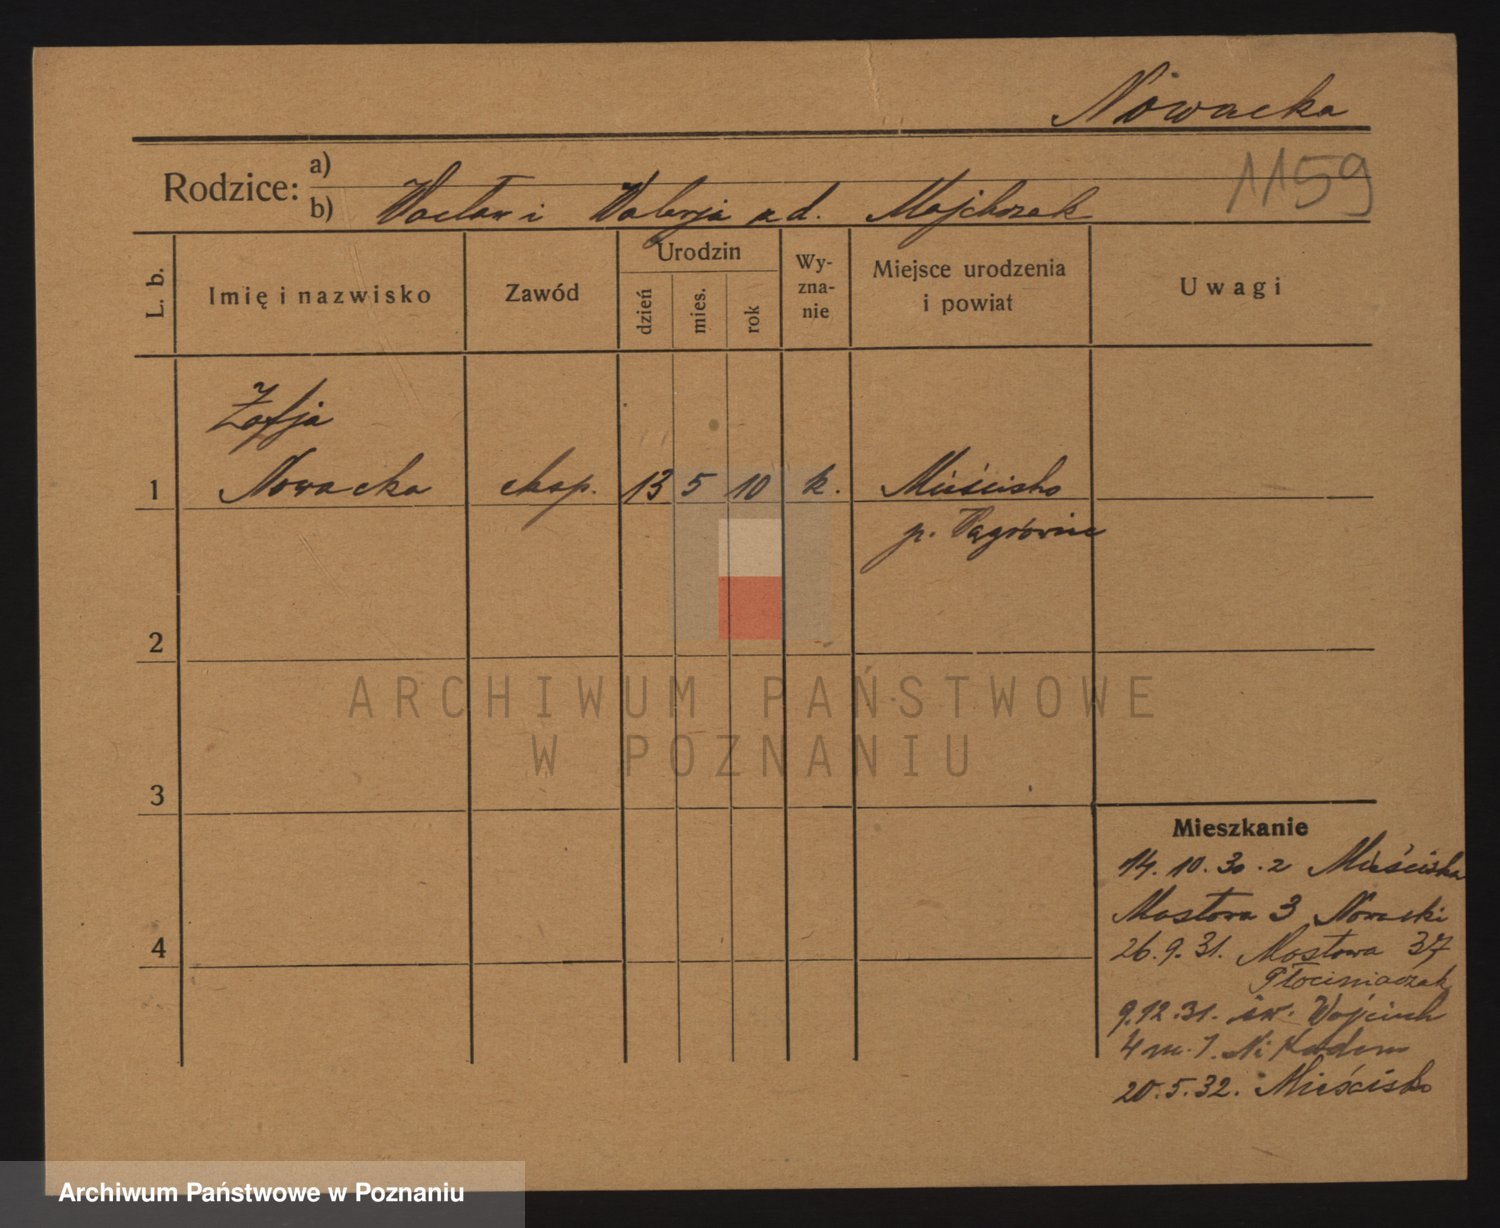 Nowacka
1159
Rodzice:
a)
b) Wacław i Walerja z d. Majchrzak
L. b.
Imię i nazwisko
Zawód
Urodzin
dzień
mies.
rok
Wy-
zna-
nie
Miejsce urodzenia
i powiat
Uwagi
Zofja
1 Nowacka eksp. 13 5 10 k. Mieścisko
p. Wągrówiec
2
3
4
ARCHIWUM PAŃSTWOWE
W POZNANIU
Mieszkanie
14. 10. 30. z Mieściska
Mostowa 3 Nowacki
26. 9. 31. Mostowa 37
Płociniaczak
9.12.31. św. Wojciech
4 m. 1.
20.5.32. Mieścisko
Archiwum Państwowe w Poznaniu